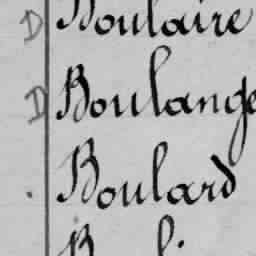 D Boulaire
D Boulange
. Boulard